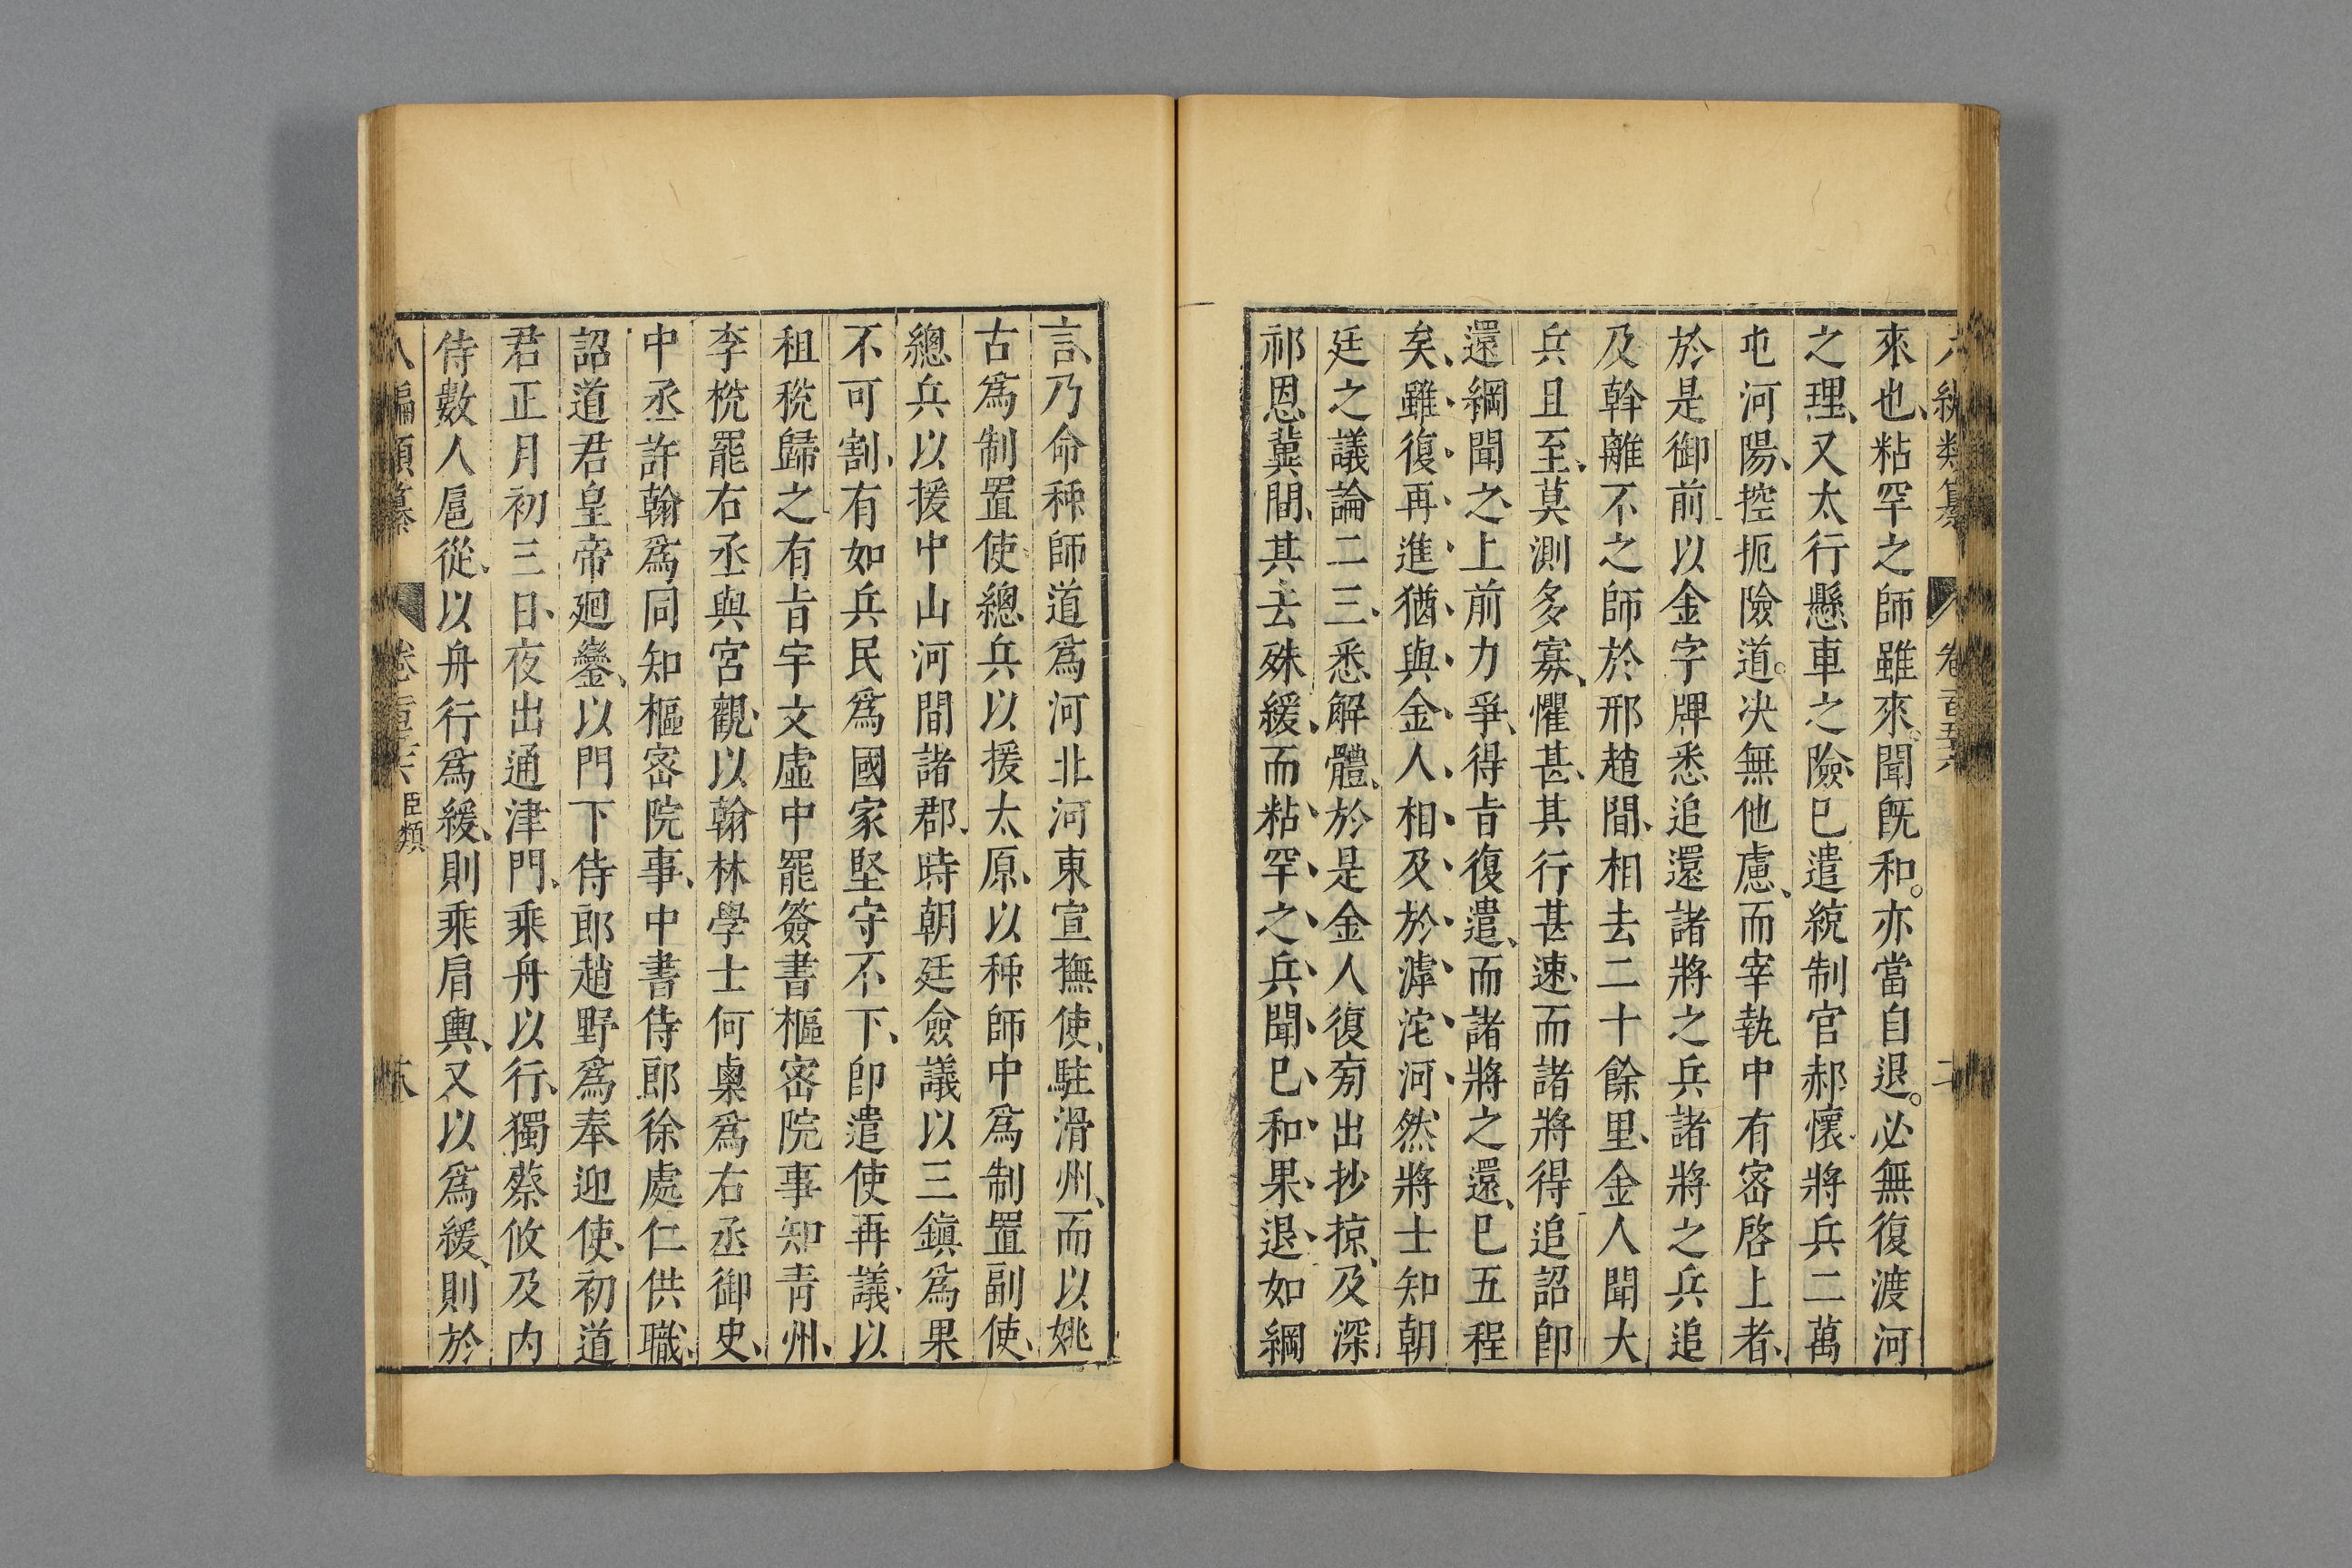 來也、粘罕之師雖來。聞既和。亦當自退。必無復渡河
之理、又太行懸車之險、已遣統制官郝懷、將兵二萬
屯河陽、控扼險道。決無他慮、而宰執中有密啓上者、
於是御前以金字牌悉追還諸將之兵諸將之兵追
及斡離不之師於邢趙間、相去二十餘里、金人聞大
兵且至、莫測多寡、懼甚、其行甚速、而諸將得追詔卽
還綱聞之上前力爭、得旨復遣、而諸將之還、已五程
矣、雖復再進猶與金人相及於滹沱河、然將士知朝
廷之議論二三、悉解體、於是金人復旁出抄掠、及深
祁恩冀間、其去殊緩、而粘罕之兵聞已和果退如綱
言、乃命种師道爲河北河東宣撫使、駐滑州、而以姚
古爲制置使總兵以援太原、以种師中爲制置副使、
總兵以援中山河間諸郡、時朝廷僉議以三鎮爲果
不可割、有如兵民爲國家堅守不下、卽遣使再議、以
租稅歸之有旨宇文虛中罷簽書樞密院事知青州、
李梲罷右丞與宮觀、以翰林學士何㮚爲右丞御史、
中丞許翰爲同知樞密院事、中書侍郎徐處仁供職、
詔道君皇帝廻鑾、以門下侍郎趙野爲奉迎使、初道
君正月初三日、夜出通津門、乘舟以行、獨蔡攸及內
侍數人扈從、以舟行爲緩、則乘肩輿、又以爲緩、則於
八編類纂 卷 臣類